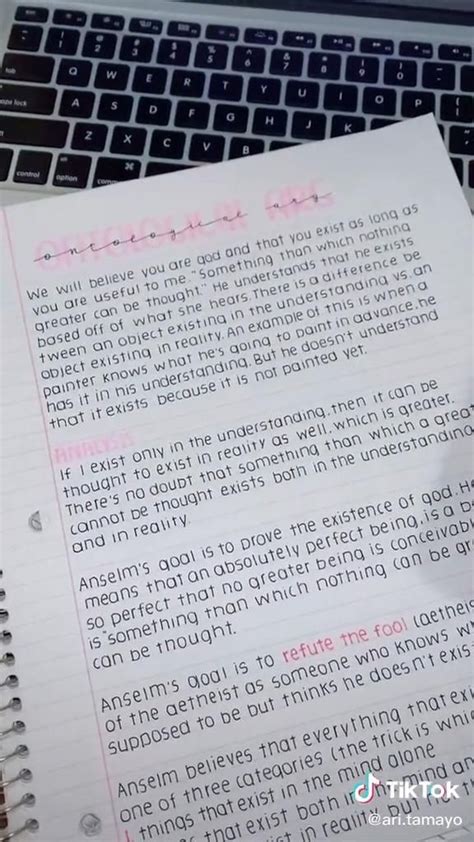 ! 1 @ 2 # 3 $ 4 % 5 ^ 6 & 7 * 8 ( 9 ) 0
tab Q W E R T Y U I O P
caps lock A S D F G H J K
Z X C V B
control option ⌘
ONTOLOGICAL ARG
ontological arg
We will believe you are god and that you exist as long as
you are useful to me. "Something than which nothing
greater can be thought." He understands that he exists
based off of what she hears. There is a difference be
tween an object existing in the understanding vs. an
object existing in reality. An example of this is when a
painter knows what he's going to paint in advance, he
has it in his understanding. But he doesn't understand
that it exists because it is not painted yet.
ANALYSIS
If I exist only in the understanding, then it can be
thought to exist in reality as well, which is greater.
There's no doubt that something than which a great
cannot be thought exists both in the understanding
and in reality.
Anselm's goal is to prove the existence of god. He
means that an absolutely perfect being, is a b
so perfect that no greater being is conceivab
is "something than which nothing (can be gr
can be thought.
Anselm's goal is to refute the fool (aethe
of the aetheist as someone who knows w
supposed to be but thinks he doesn't exis
Anselm believes that everything that ex
one of three categories (the trick is whic
1. things that exist in the mind alone
that exist both in mind an
in reality, but not
TikTok
@ari.tamayo